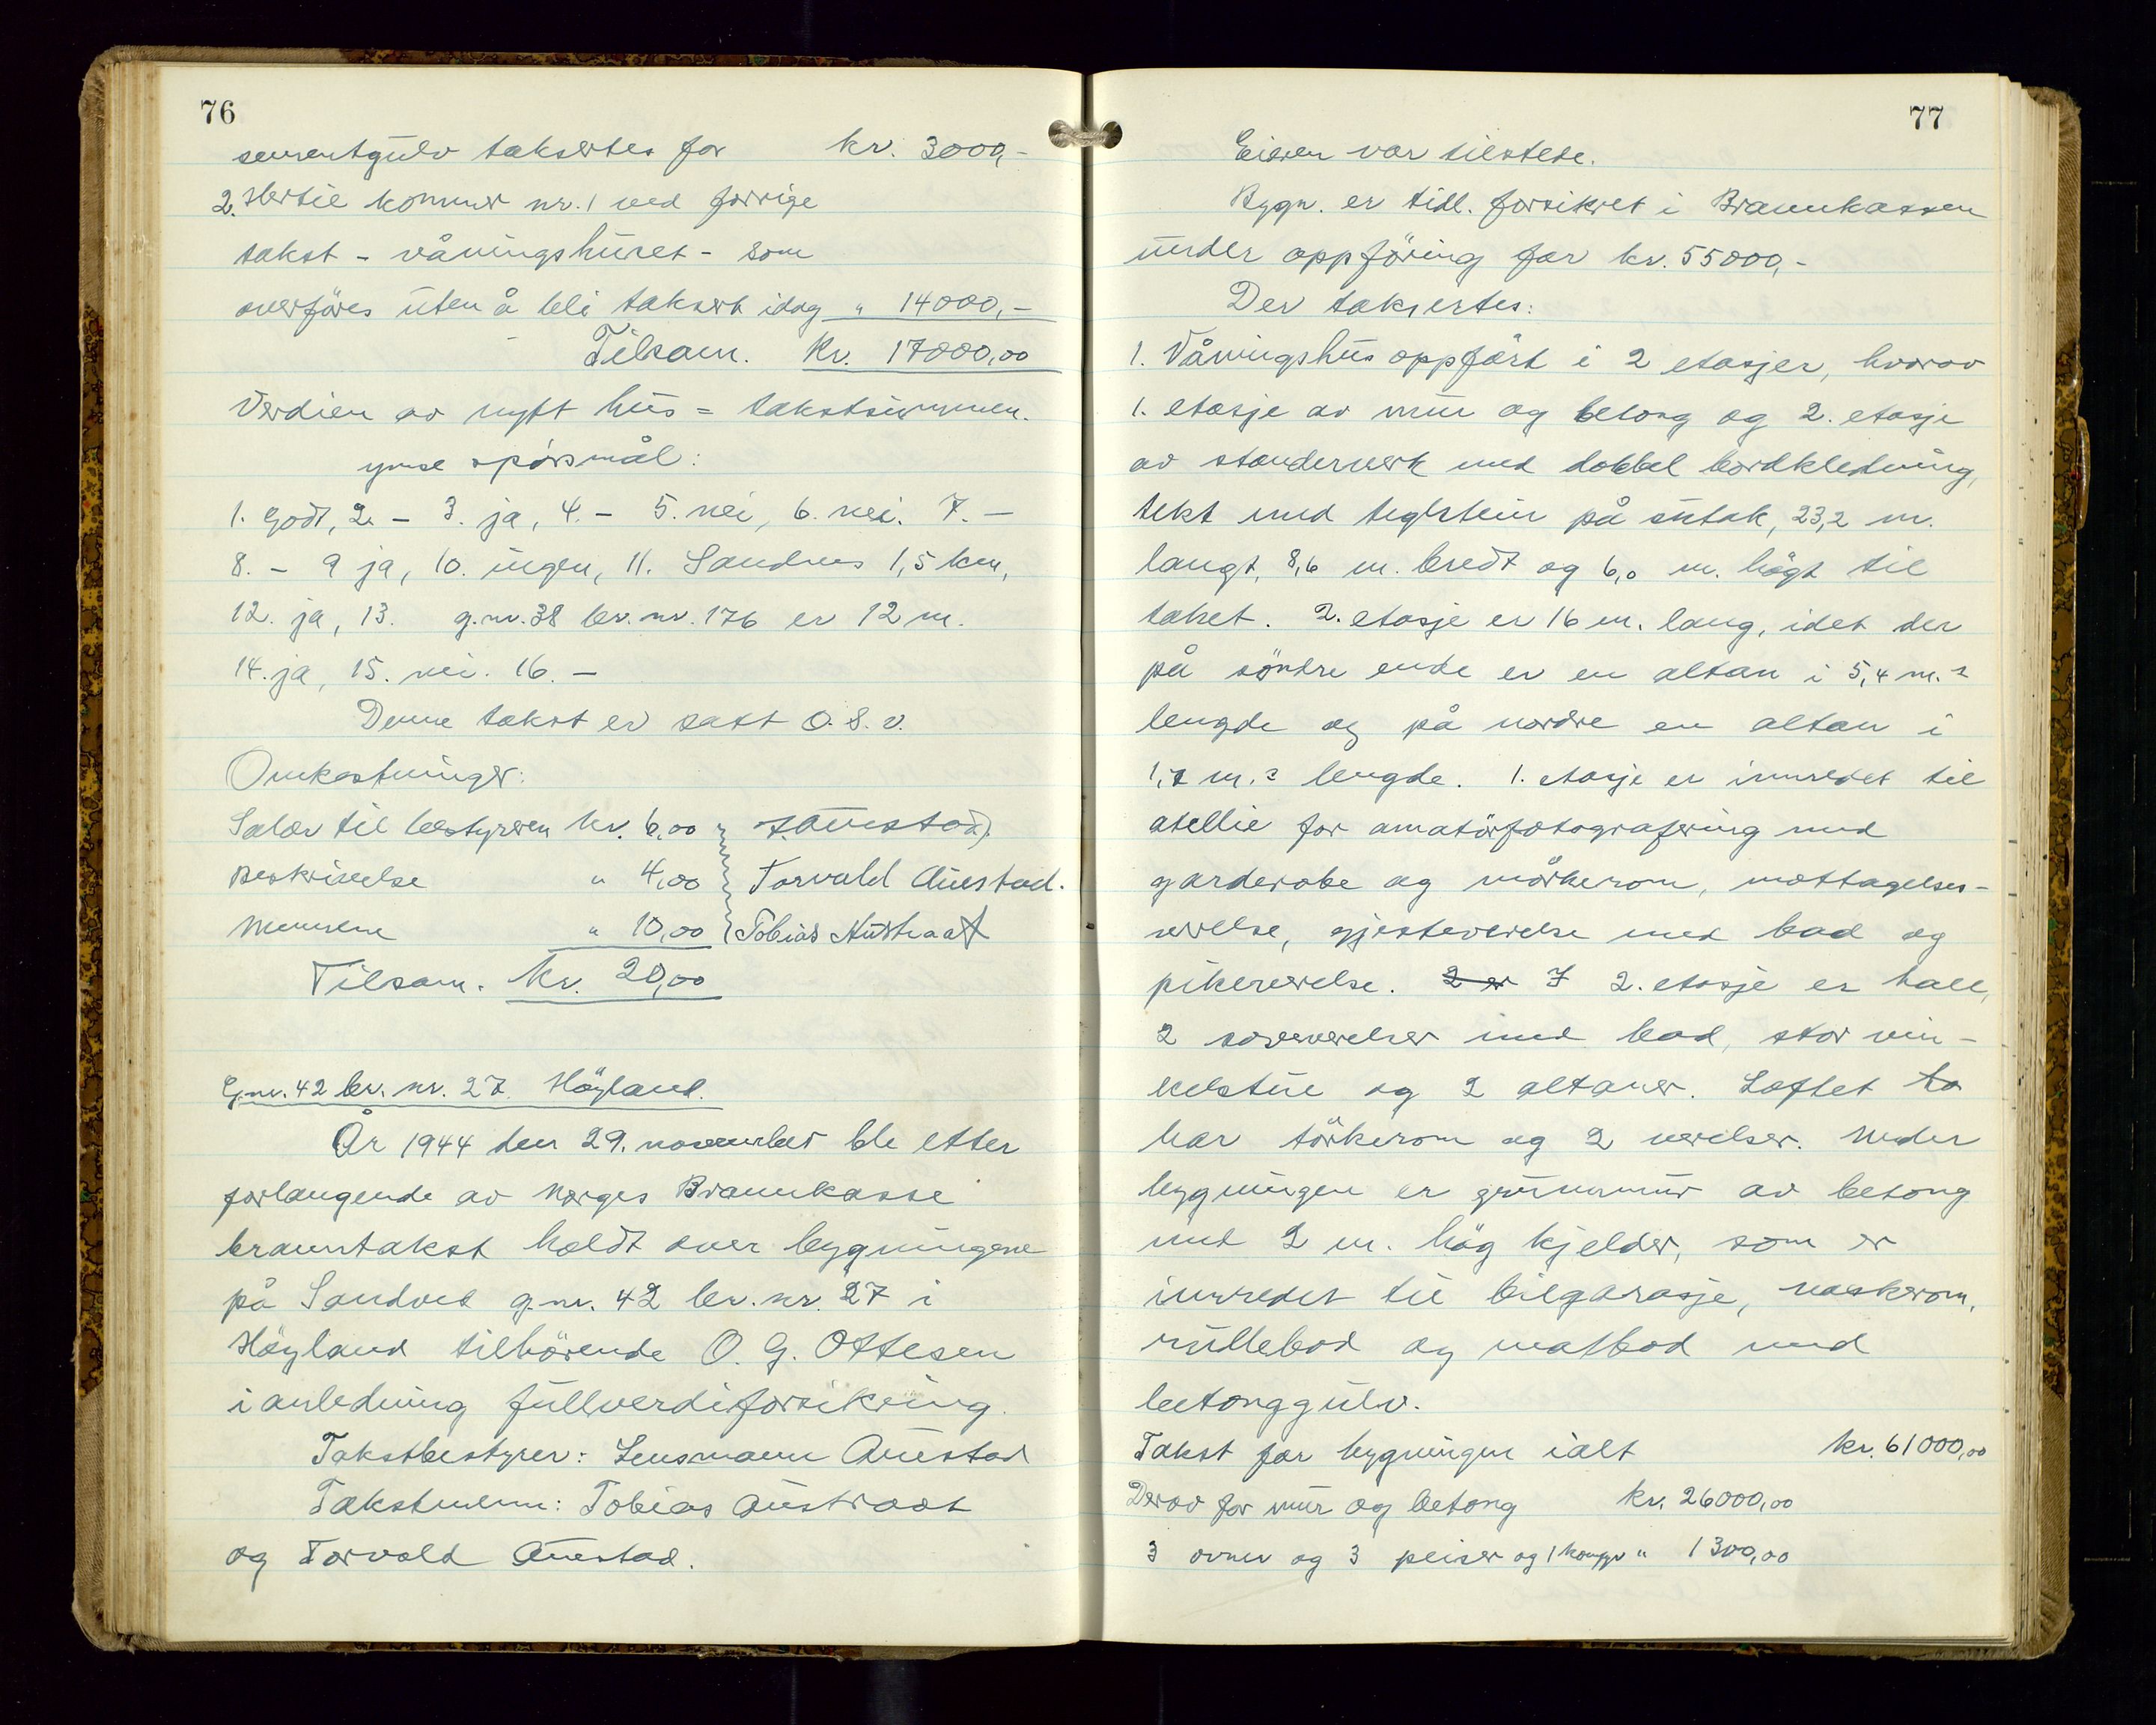 76
sementgulv taksertes for kr. 3000,-
2. Hertil kommer nr. 1 ved forrige
takst - våningshuset - som
overføres uten å bli taksert idag " 14000,-
Tilsam. Kr. 17000,00
Verdien av nytt hus = takstsummen.
ymse spörsmål:
1. Godt, 2. - 3. ja, 4. - 5. nei, 6. nei. 7. -
8. - 9 ja, 10. ingen, 11. Sandnes 1,5 km,
12. ja, 13. g.nr. 38 br. nr. 176 er 12 m.
14. ja, 15. nei. 16. -
Denne takst er satt O. S. v.
Omkostninger:
Salær til bestyreren kr. 6,00 Auestad
Beskrivelse " 4,00 Torvald Auestad.
Mennene " 10,00 Tobias Austraat
Tilsam. Kr. 20,00
G.nr. 42 br. nr. 27. Höyland.
År 1944 den 29. november ble etter
forlangende av Norges Brannkasse
branntakst holdt over bygningene
på Sandved g.nr. 42 br. nr. 27 i
Höyland tilhörende O. G. Ottesen
i anledning fullverdiforsikring.
Takstbestyrer: Lensmann Auestad
Takstmenn: Tobias Austraat
og Torvald Auestad.
77
Eieren var tilstede.
Bygn. er tidl. forsikret i Brannkassen
under oppföring for kr. 55000,-
Der taksertes:
1. Våningshus oppfört i 2 etasjer, hvorav
1. etasje av mur og betong og 2. etasje
av stenderverk med dobbel bordkledning,
tekt med teglstein på sutak, 23,2 m.
langt, 8,6 m. bredt og 6,0 m. högt til
taket. 2. etasje er 16 m. lang, idet der
på söndre ende er en altan i 5,4 m.s
lengde og på nordre en altan i
1,7 m.s lengde. 1. etasje er innredet til
atellie for amatörfotografering med
garderobe og mörkerom, mottagelses-
verelse, gjesteverelse med bad og
pikeverelse. 2 er I 2. etasje er hall,
2 soveverelser med bad, stor vin-
kelstue og 2 altaner. Loftet ha
har törkerom og 2 verelser. Under
bygningen er grunnmur av betong
med 2 m. hög kjelder, som er
innredet til bilgarasje, vaskerom,
rullebod og matbod med
betonggulv.
Takst for bygningen ialt kr. 61000,00
Derav for mur og betong kr. 26000,00
3 ovner og 3 peiser og 1 komfyr " 1300,00